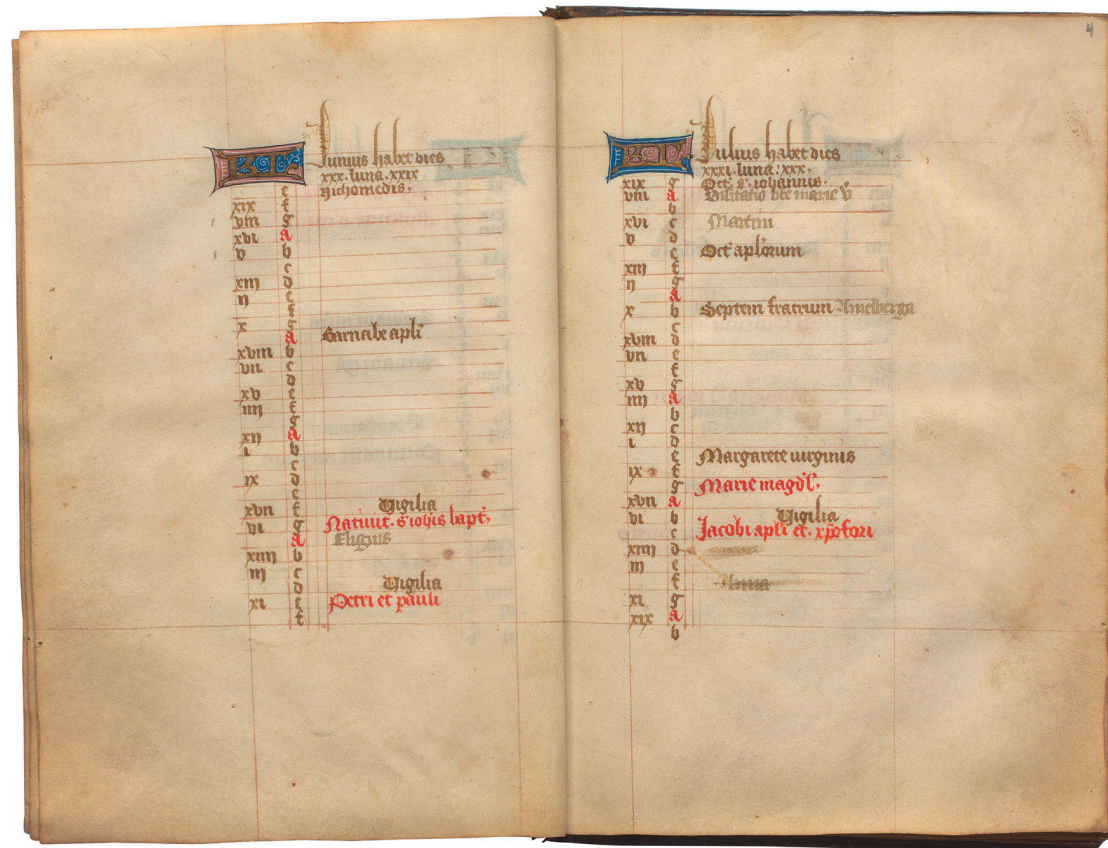 Junius habet dies
xxx. luna. xxix
e Nichomedis.
xix f
viii g
xvi a
v b
c
xiii d
ii e
f
x g
a Barnabe apl̄i
xviii b
vii c
d
xv e
iiii f
g
xii a
i b
c
ix d
e
xvii f Vigilia
vi g Natiuit. s̄ ioh̄is bapt̄.
a Eligius
xiiii b
iii c
d Vigilia
xi e Petri et pauli
f
4
Julius habet dies
xxxi. luna. xxx.
xix g Oct̄. s̄. iohannis.
viii a Visitatio bt̄e marie v̄
b
xvi c Martini
v d
e Oct̄ apl̄orum
xiii f
ii g
a
x b Septem fratrum Amelberga
c
xviii d
vii e
f
xv g
iiii a
b
xii c
i d
e Margarete uirginis
ix f
g Marie magd̄l.
xvii a
vi b Vigilia
c Jacobi apl̄i et. xp̄ofori
xiiii d
iii e
f Anna
xi g
xix a
b